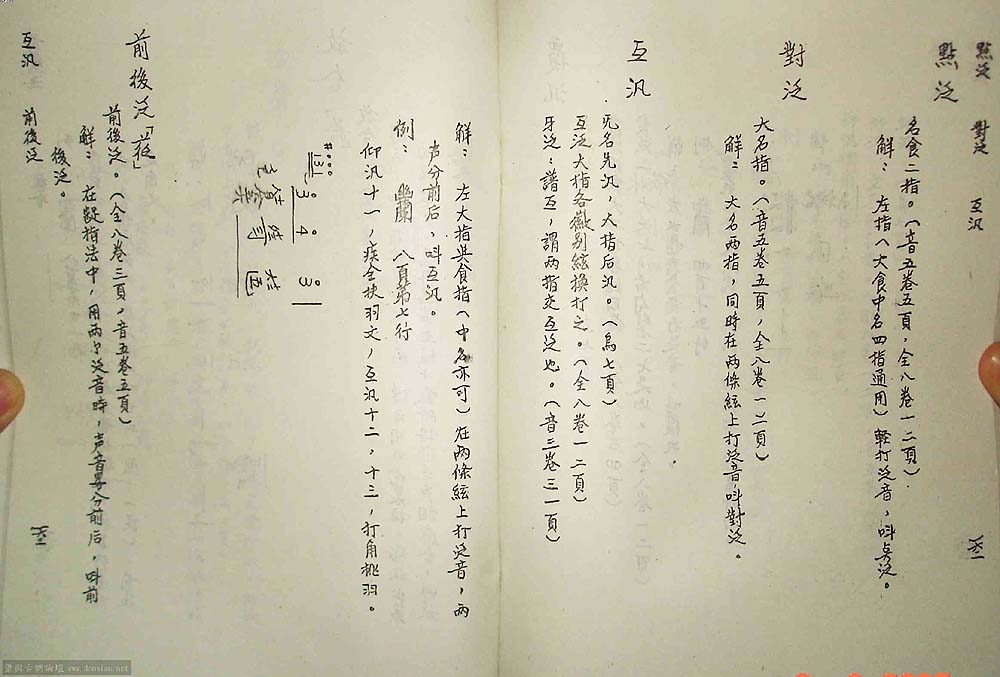 點泛 對泛 互汎
點泛
名食二指。(音五卷五頁,全八卷一二頁)
解:左指(大食中名四指通用)輕打泛音,呌点泛。
對泛
大名指。(音五卷五頁,全八卷一二頁)
解:大名兩指,同時在兩條絃上打泛音,呌對泛。
互汎
先名先汎,大指后汎。(烏七頁)
互泛大指各徽别絃換打之。(全八卷一二頁)
牙泛:譜互,謂兩指交互泛也。(音三卷三一頁)
解:左大指與食指(中名亦可)在兩條絃上打泛音,兩
声分前后,呌互汎。
例:幽蘭 八頁第七行
仰汎十一,疾全扶羽文,互汎十二,十三,打角挑羽。
3 3 4 3
前後泛「」
前後泛。(全八卷三頁,音五卷五頁)
解:在指法中,用兩个泛音時,声音要分前后,呌前
後泛。
互汎 前後泛
景興古調論壇 www.donxiau.net